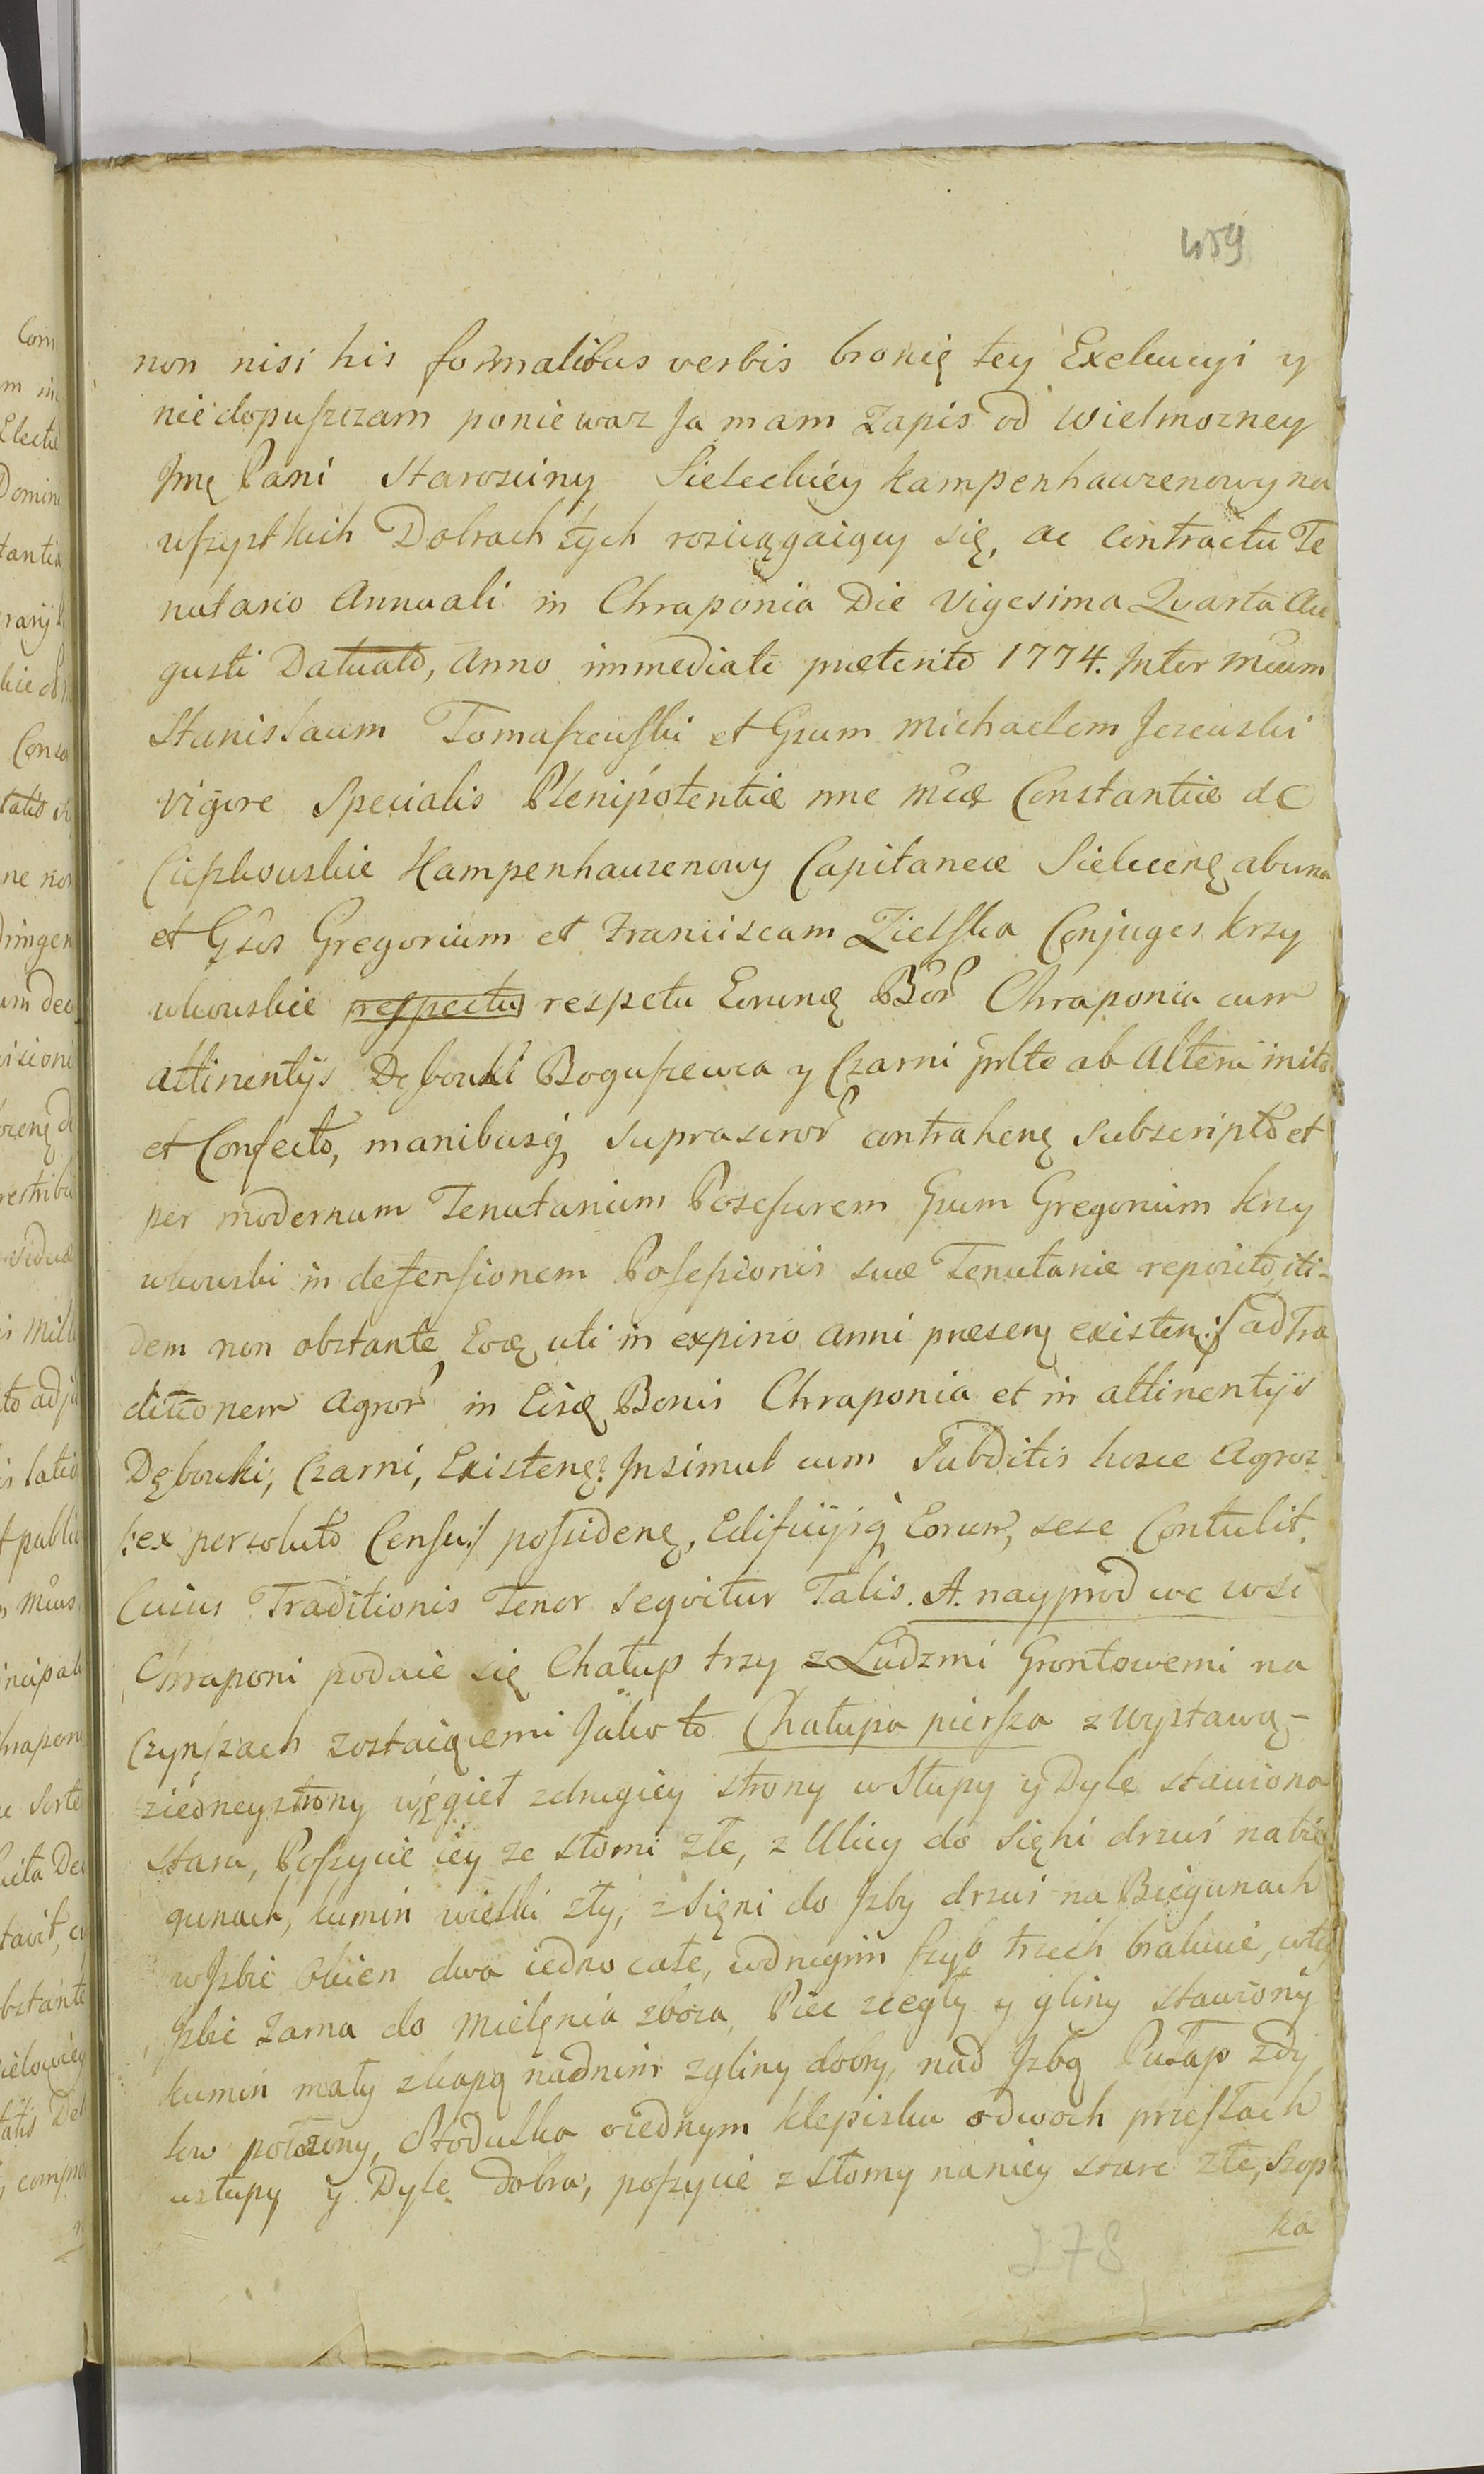 459
non nisi his formalibus verbis bronię tey Exekucyi y
niedopuszczam poniewaz Ja mam Zapis od Wielmozney
Jmę Pani Starosciny Sieleckiey Kampenhauzenowy na
wszystkich Dobrach tych rosciągaiący się, ac Contractu Te
nutario Annuali in Chraponia Die Vigesima Qvarta Au
gusti Datuato, Anno immediate præterito 1774. Inter
Stanislaum Tomaszewski et Gsum Michaelem Jezewski
vigore Specialis Plenipotentiæ Constantiæ de
Kampenhauzenowy Capitaneæ ab una
et Gsos Gregorium et Franciscam Zielska Conjuges Krzy
wkowskie respectu respetu Bor Chraponia cum
attinentijs Dębowki Boguszewca y Czarni ab Altera inito
et Confecto, manibusq contrahenę Subscripto et
per modernum Tenutarium Posessorem Gsum Gregorium Krzy
wkowski in defensionem Possessionis suæ Tenutariæ reposito, iti-
dem non obstante, uti in expirio anni præsenę existenę:/ ad Tra
ditionem Agror in Bonis Chraponia et in attinentijs
Dębowki, Czarni, Existenę. Insimul cum Subditis hosce Agros
/:ex persoluto Censu:/ possidenę, Edificijsq Eorum, sese Contulit.
Cuius Traditionis Tenor Seqvitur Talis. A. nayprod we wsi
Chraponi podaie się Chałup trzy z Ludzmi Grontowemi na
Czynszach zostaiącemi Jako to Chałupa piersza z Wystawą-
ziedneystrony węgieł zdrugiey strony w Słupy y Dyle stawiona
stara, Poszycie iey ze słomi złe, z Ulicy do Sięni drzwi na bie
gunach, kumin wielki zły, z Sięni do Jzby drzwi na Biegunach
w Jzbie Okien dwa iedno całe, wdrugim szyb trzech brakuie, wtey
Jzbie Zarna do Mielęnia zboza, Piec zcegły y gliny stawiony
kumin mały zkapą nadnim zgliny dobry, nad Jzbą Pułap zdy
low połozony, Stodułka oiednym klepisku odwoch przęsłach
wsłupy y Dyle dobra, poszycie z Słomy naniey stare złe, Szop
ka
278